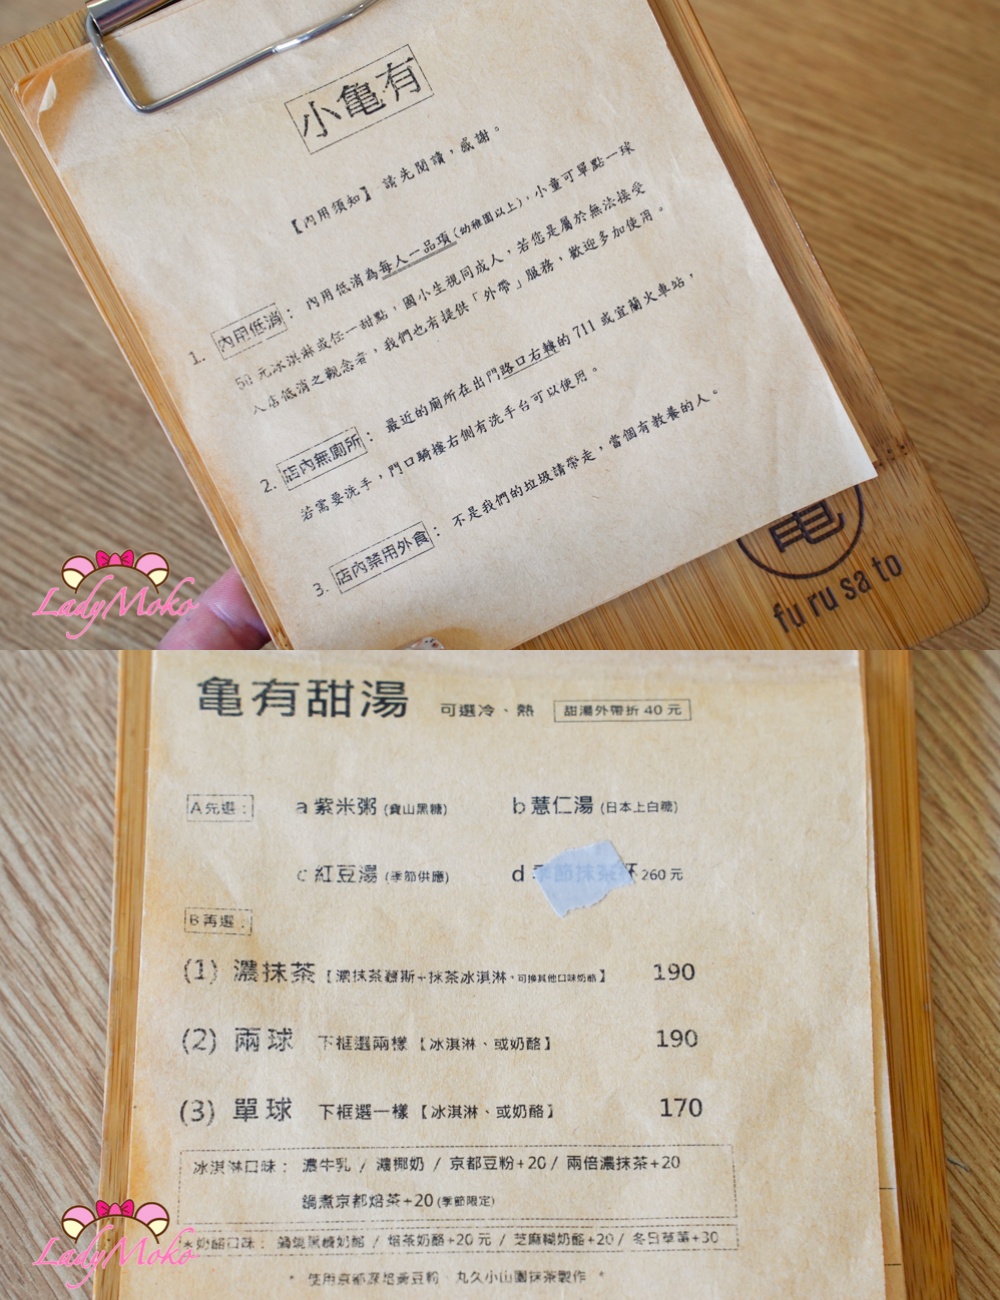 小亀有
【內用須知】 請先閱讀，感謝。
1. 內用低消： 內用低消為每人一品項(幼稚園以上)，小童可單點一球
50 元冰淇淋或任一甜點，國小生視同成人，若您是屬於無法接受
入店低消之觀念者，我們也有提供「外帶」服務，歡迎多加使用。
2. 店內無廁所： 最近的廁所在出門路口右轉的 711 或宜蘭火車站，
若需要洗手，門口騎樓右側有洗手台可以使用。
3. 店內禁用外食： 不是我們的垃圾請帶走，當個有教養的人。
furusato
LadyMoko
亀有甜湯 可選冷、熱 甜湯外帶折 40 元
A先選： a 紫米粥 (寶山黑糖) b 薏仁湯 (日本上白糖)
c 紅豆湯 (季節供應) d 260 元
B再選：
(1) 濃抹茶【濃抹茶慕斯+抹茶冰淇淋，可換其他口味奶酪】 190
(2) 兩球 下框選兩樣【冰淇淋、或奶酪】 190
(3) 單球 下框選一樣【冰淇淋、或奶酪】 170
冰淇淋口味： 濃牛乳 / 濃椰奶 / 京都豆粉+20 / 兩倍濃抹茶+20
鍋煮京都焙茶+20 (季節限定)
奶酪口味： 鍋燒黑糖奶酪 / 焙茶奶酪+20 元 / 芝麻糊奶酪+20 / 冬日草莓+30
* 使用京都深焙黃豆粉、丸久小山園抹茶製作 *
LadyMoko